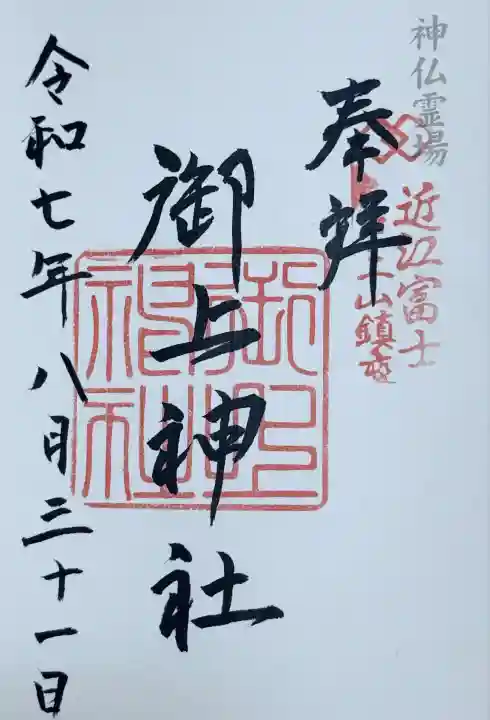 神仏霊場
近江富士
山鎮座
奉拝
御上神社
御上神社
令和七年八月三十一日